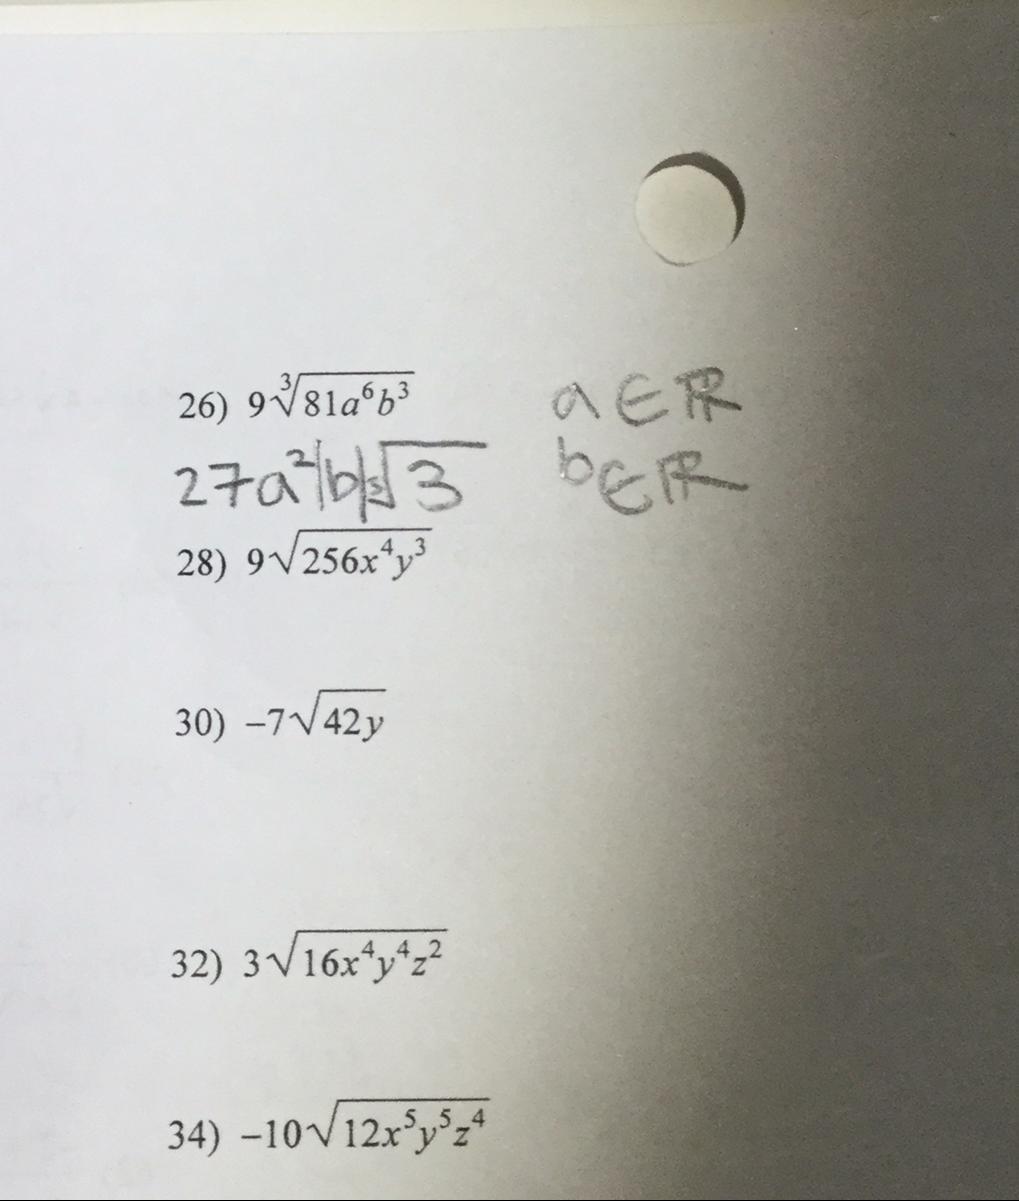 26) 9∛81a⁶b³ a ∈ ℝ
27a²|b|∛3 b ∈ ℝ
28) 9√256x⁴y³
30) −7√42y
32) 3√16x⁴y⁴z²
34) −10√12x⁵y⁵z⁴